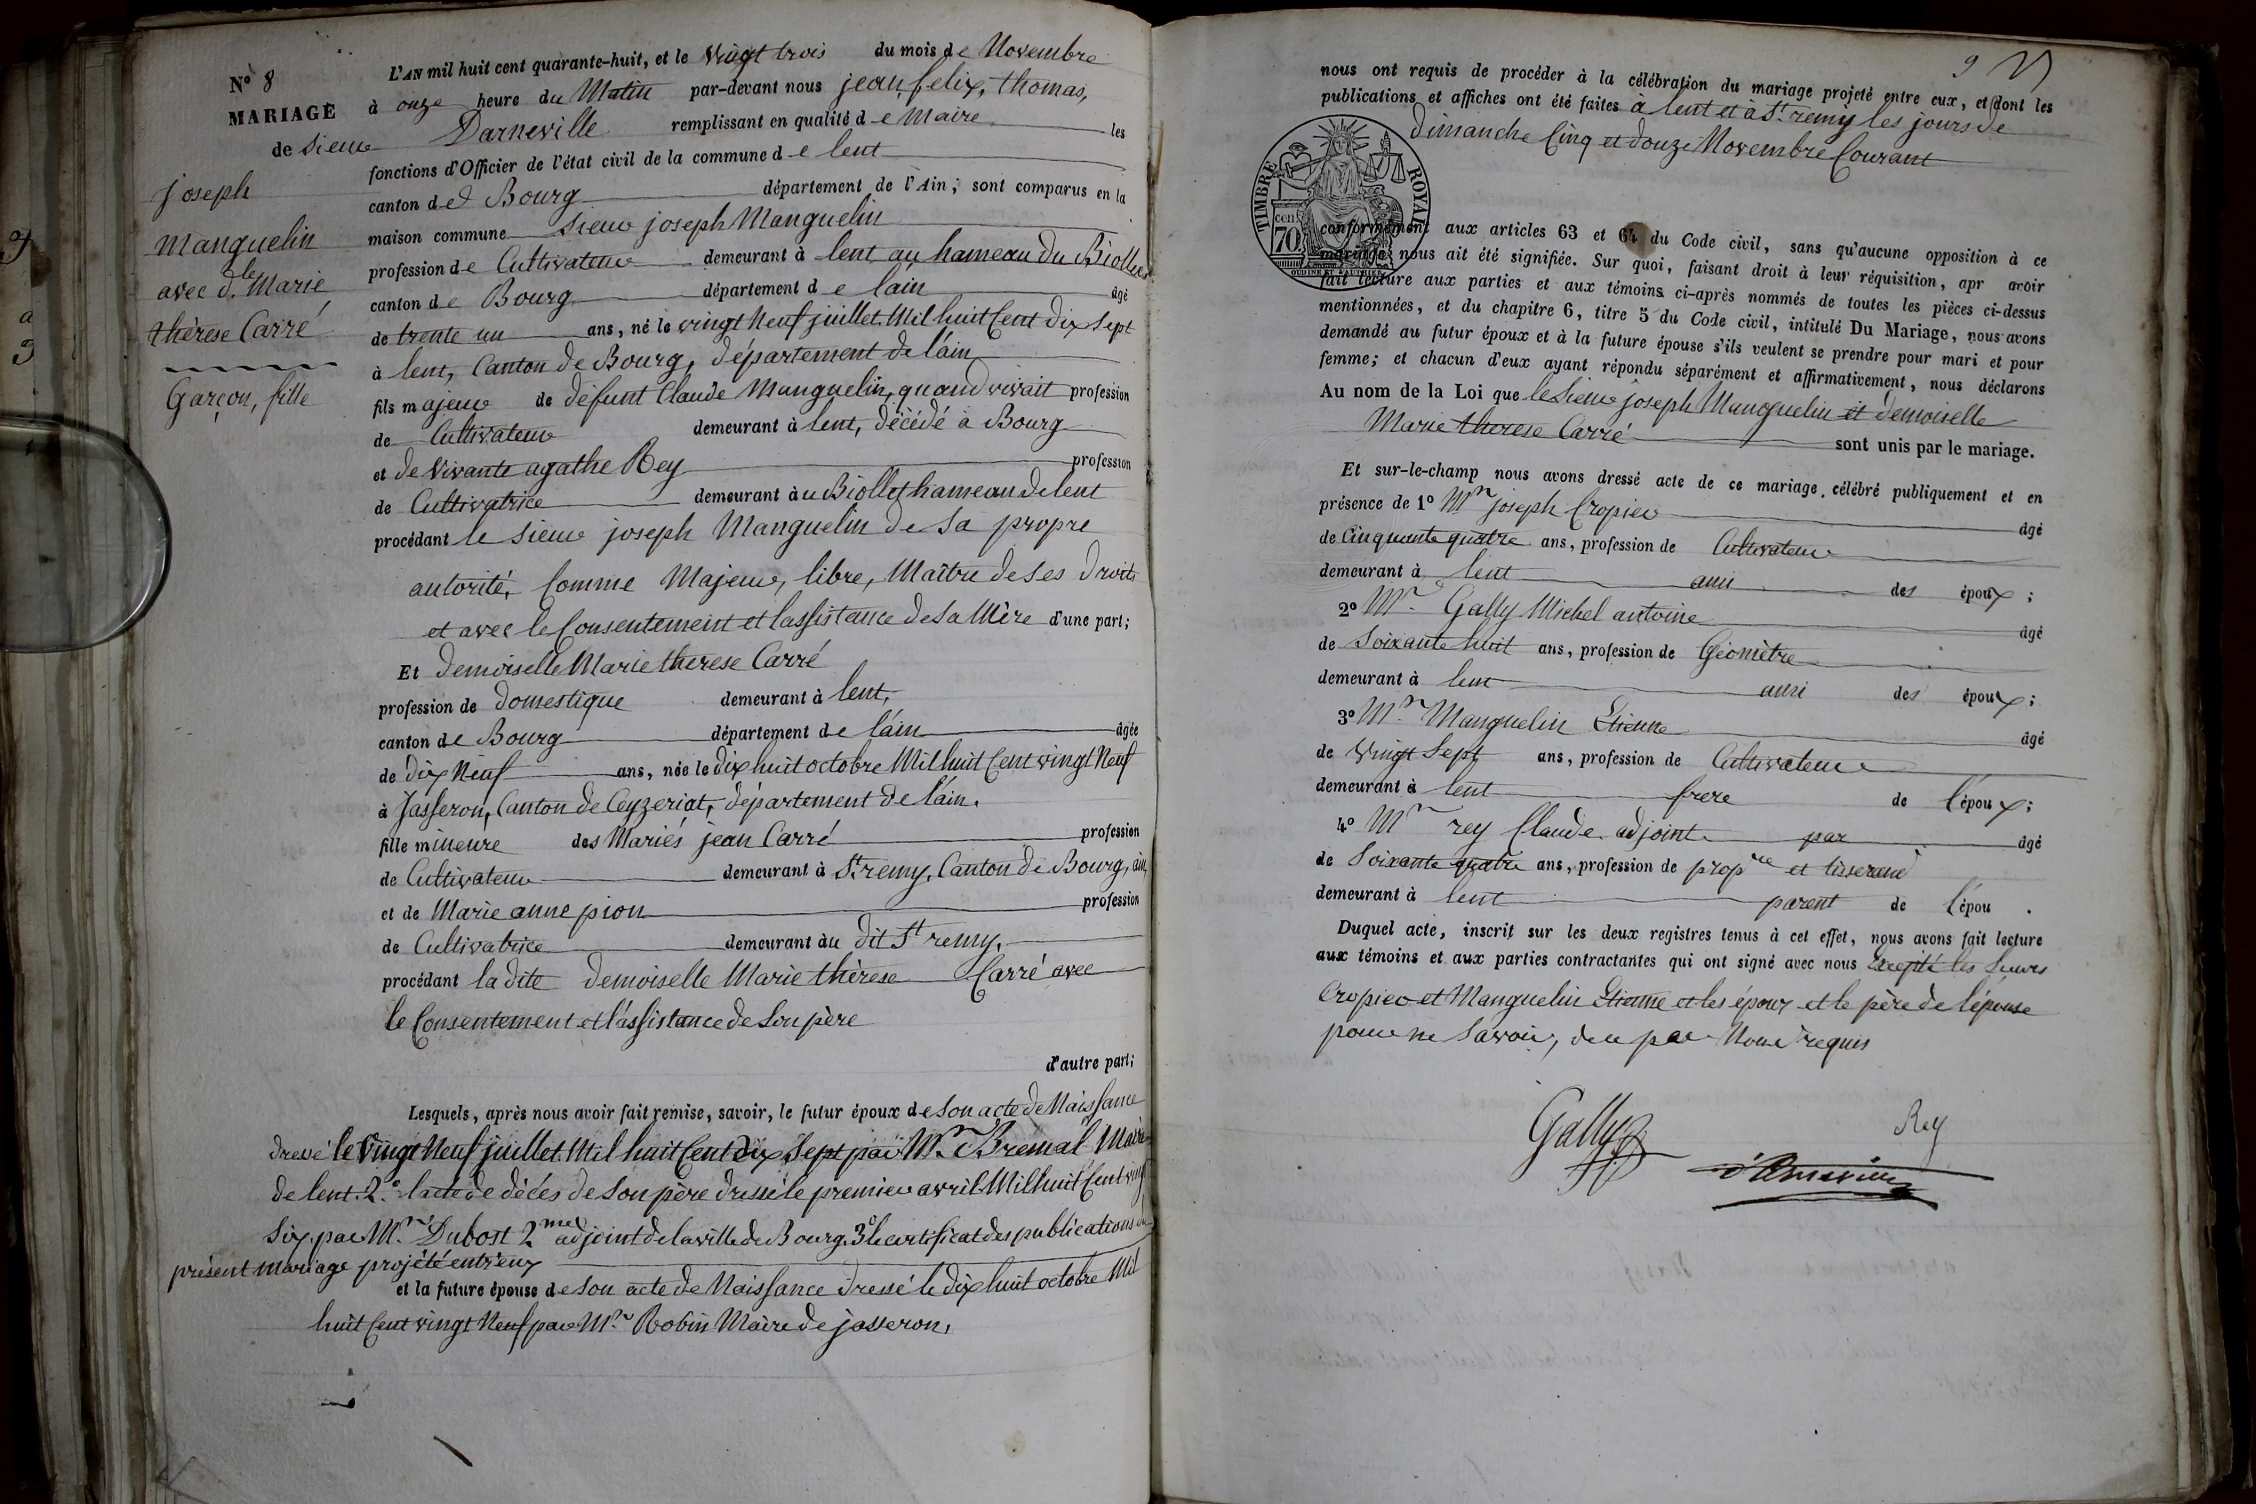 N° 8
MARIAGE
de Sieur
joseph
Manguelin
avec dlle Marie
thérèse Carré
Garçon, fille
L'AN mil huit cent quarante-huit, et le vingt trois du mois de Novembre
à onze heure du Matin par-devant nous jean, felix, thomas,
Darneville remplissant en qualité de Maire les
fonctions d'Officier de l'état civil de la commune de lent
canton de Bourg département de l'Ain; sont comparus en la
maison commune Sieur joseph Manguelin
profession de Cultivateur demeurant à lent au hameau du Biollet
canton de Bourg département de l'ain âgé
de trente un ans, né le vingt Neuf juillet Mil huit Cent dix Sept
à lent, Canton de Bourg, département de l'ain
fils majeur de défunt Claude Manguelin, quand vivait profession
de Cultivateur demeurant à lent, décédé à Bourg
et de vivante agathe Rey profession
de Cultivatrice demeurant au Biollet hameau de lent
procédant le Sieur joseph Manguelin de Sa propre
autorité, Comme Majeur, libre, Maître de Ses droits
et avec le Consentement et l'assistance de Sa Mère d'une part;
Et demoiselle Marie therese Carré
profession de domestique demeurant à lent,
canton de Bourg département de l'ain âgée
de dix Neuf ans, née le dix huit octobre Mil huit Cent vingt Neuf
à Jasseron, Canton de Ceyzeriat, département de l'ain.
fille mineure des Mariés jean Carré profession
de Cultivateur demeurant à St remy, Canton de Bourg, ain,
et de Marie anne pion profession
de Cultivatrice demeurant au dit St remy,
procédant la dite demoiselle Marie thérèse Carré avec
le Consentement et l'assistance de Son père
d'autre part;
Lesquels, après nous avoir fait remise, savoir, le futur époux de Son acte de Naissance
dressé le Vingt Neuf juillet Mil huit Cent dix Sept par Mr Bremal Maire
de lent. 2° l'acte de décès de Son père dressé le premier avril Mil huit Cent vingt
Six, par Mr Dubost 2me adjoint de la ville de Bourg. 3° le certificat des publications du
présent mariage projeté entr'eux
et la future épouse de Son acte de Naissance dressé le dix huit octobre Mil
huit Cent vingt Neuf par Mr Robin Maire de jasseron,
9
nous ont requis de procéder à la célébration du mariage projeté entre eux, et dont les
publications et affiches ont été faites à lent et à St remy les jours de
dimanche Cinq et douze Novembre Courant
TIMBRE ROYAL
70 cen
conformément aux articles 63 et 64 du Code civil, sans qu'aucune opposition à ce
mariage nous ait été signifiée. Sur quoi, faisant droit à leur réquisition, apr avoir
fait lecture aux parties et aux témoins ci-après nommés de toutes les pièces ci-dessus
mentionnées, et du chapitre 6, titre 5 du Code civil, intitulé Du Mariage, nous avons
demandé au futur époux et à la future épouse s'ils veulent se prendre pour mari et pour
femme; et chacun d'eux ayant répondu séparément et affirmativement, nous déclarons
Au nom de la Loi que le Sieur joseph Manguelin et demoiselle
Marie therese Carré sont unis par le mariage.
Et sur-le-champ nous avons dressé acte de ce mariage, célébré publiquement et en
présence de 1° Mr joseph Cropier âgé
de Cinquante quatre ans, profession de Cultivateur
demeurant à lent ami des époux;
2° Mr Gally Michel antoine âgé
de Soixante huit ans, profession de Géomètre
demeurant à lent ami des époux;
3° Mr Manguelin Etienne âgé
de vingt Sept ans, profession de Cultivateur
demeurant à lent frere de l'époux;
4° Mr rey Claude adjoint par âgé
de Soixante quatre ans, profession de propre et tisserand
demeurant à lent parent de l'épou .
Duquel acte, inscrit sur les deux registres tenus à cet effet, nous avons fait lecture
aux témoins et aux parties contractantes qui ont signé avec nous Excepté les Sieurs
Cropier et Manguelin Etienne et les époux et le père de l'épouse
pour ne Savoir, de ce par Nous requis
Gally
Rey